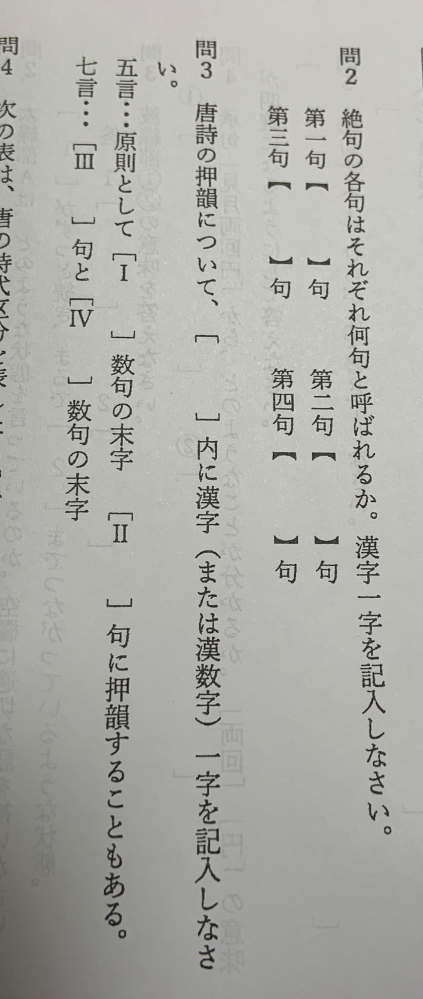 問2 絶句の各句はそれぞれ何句と呼ばれるか。漢字一字を記入しなさい。
第一句【 】句 第二句【 】句
第三句【 】句 第四句【 】句
問3 唐詩の押韻について、[ ]内に漢字(または漢数字)一字を記入しなさ
い。
五言…原則として[Ⅰ ]数句の末字 [Ⅱ ]句に押韻することもある。
七言…[Ⅲ ]句と[Ⅳ ]数句の末字
問4 次の表は、唐の時代区分を表し